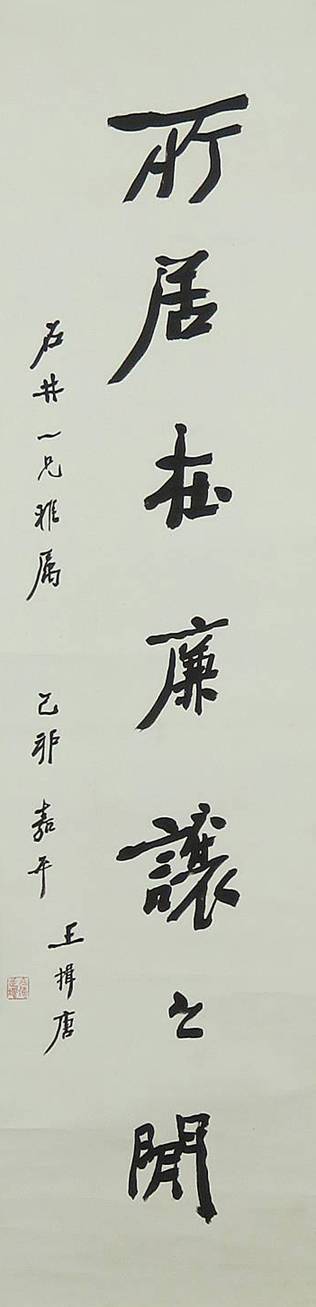 所居在廉讓之間
石井一兄雅属
己卯嘉平
王揖唐